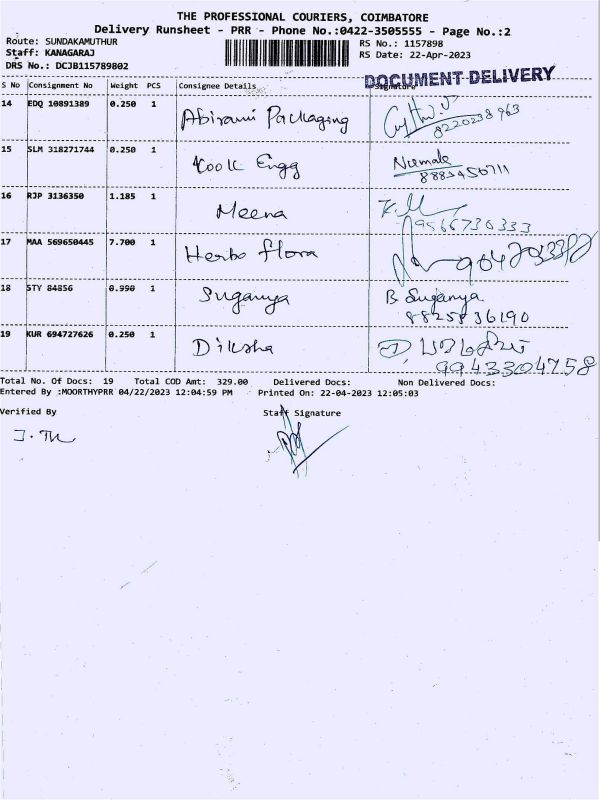 THE PROFESSIONAL COURIERS, COIMBATORE
Delivery Runsheet - PRR - Phone No.:0422-3505555 - Page No.:2
Route: SUNDAKAMUTHUR
RS No.: 1157898
Staff: KANAGARAJ
RS Date: 22-Apr-2023
DRS No.: DCJB115789802
DOCUMENT DELIVERY
S No Consignment No Weight PCS Consignee Details Signature
14 EDQ 10891389 0.250 1 Abirami Packaging
8220238963
15 SLM 318271744 0.250 1 Kook Engg Nirmala
16 RJP 3136350 1.185 1 Meena
9566730333
17 MAA 569650445 7.700 1 Herbo flora
18 STY 84856 0.990 1 Suganya B Suganya
8825836190
19 KUR 694727626 0.250 1 Diksha
9943304758
Total No. Of Docs: 19 Total COD Amt: 329.00 Delivered Docs: Non Delivered Docs:
Entered By :MOORTHYPRR 04/22/2023 12:04:59 PM Printed On: 22-04-2023 12:05:03
Verified By Staff Signature